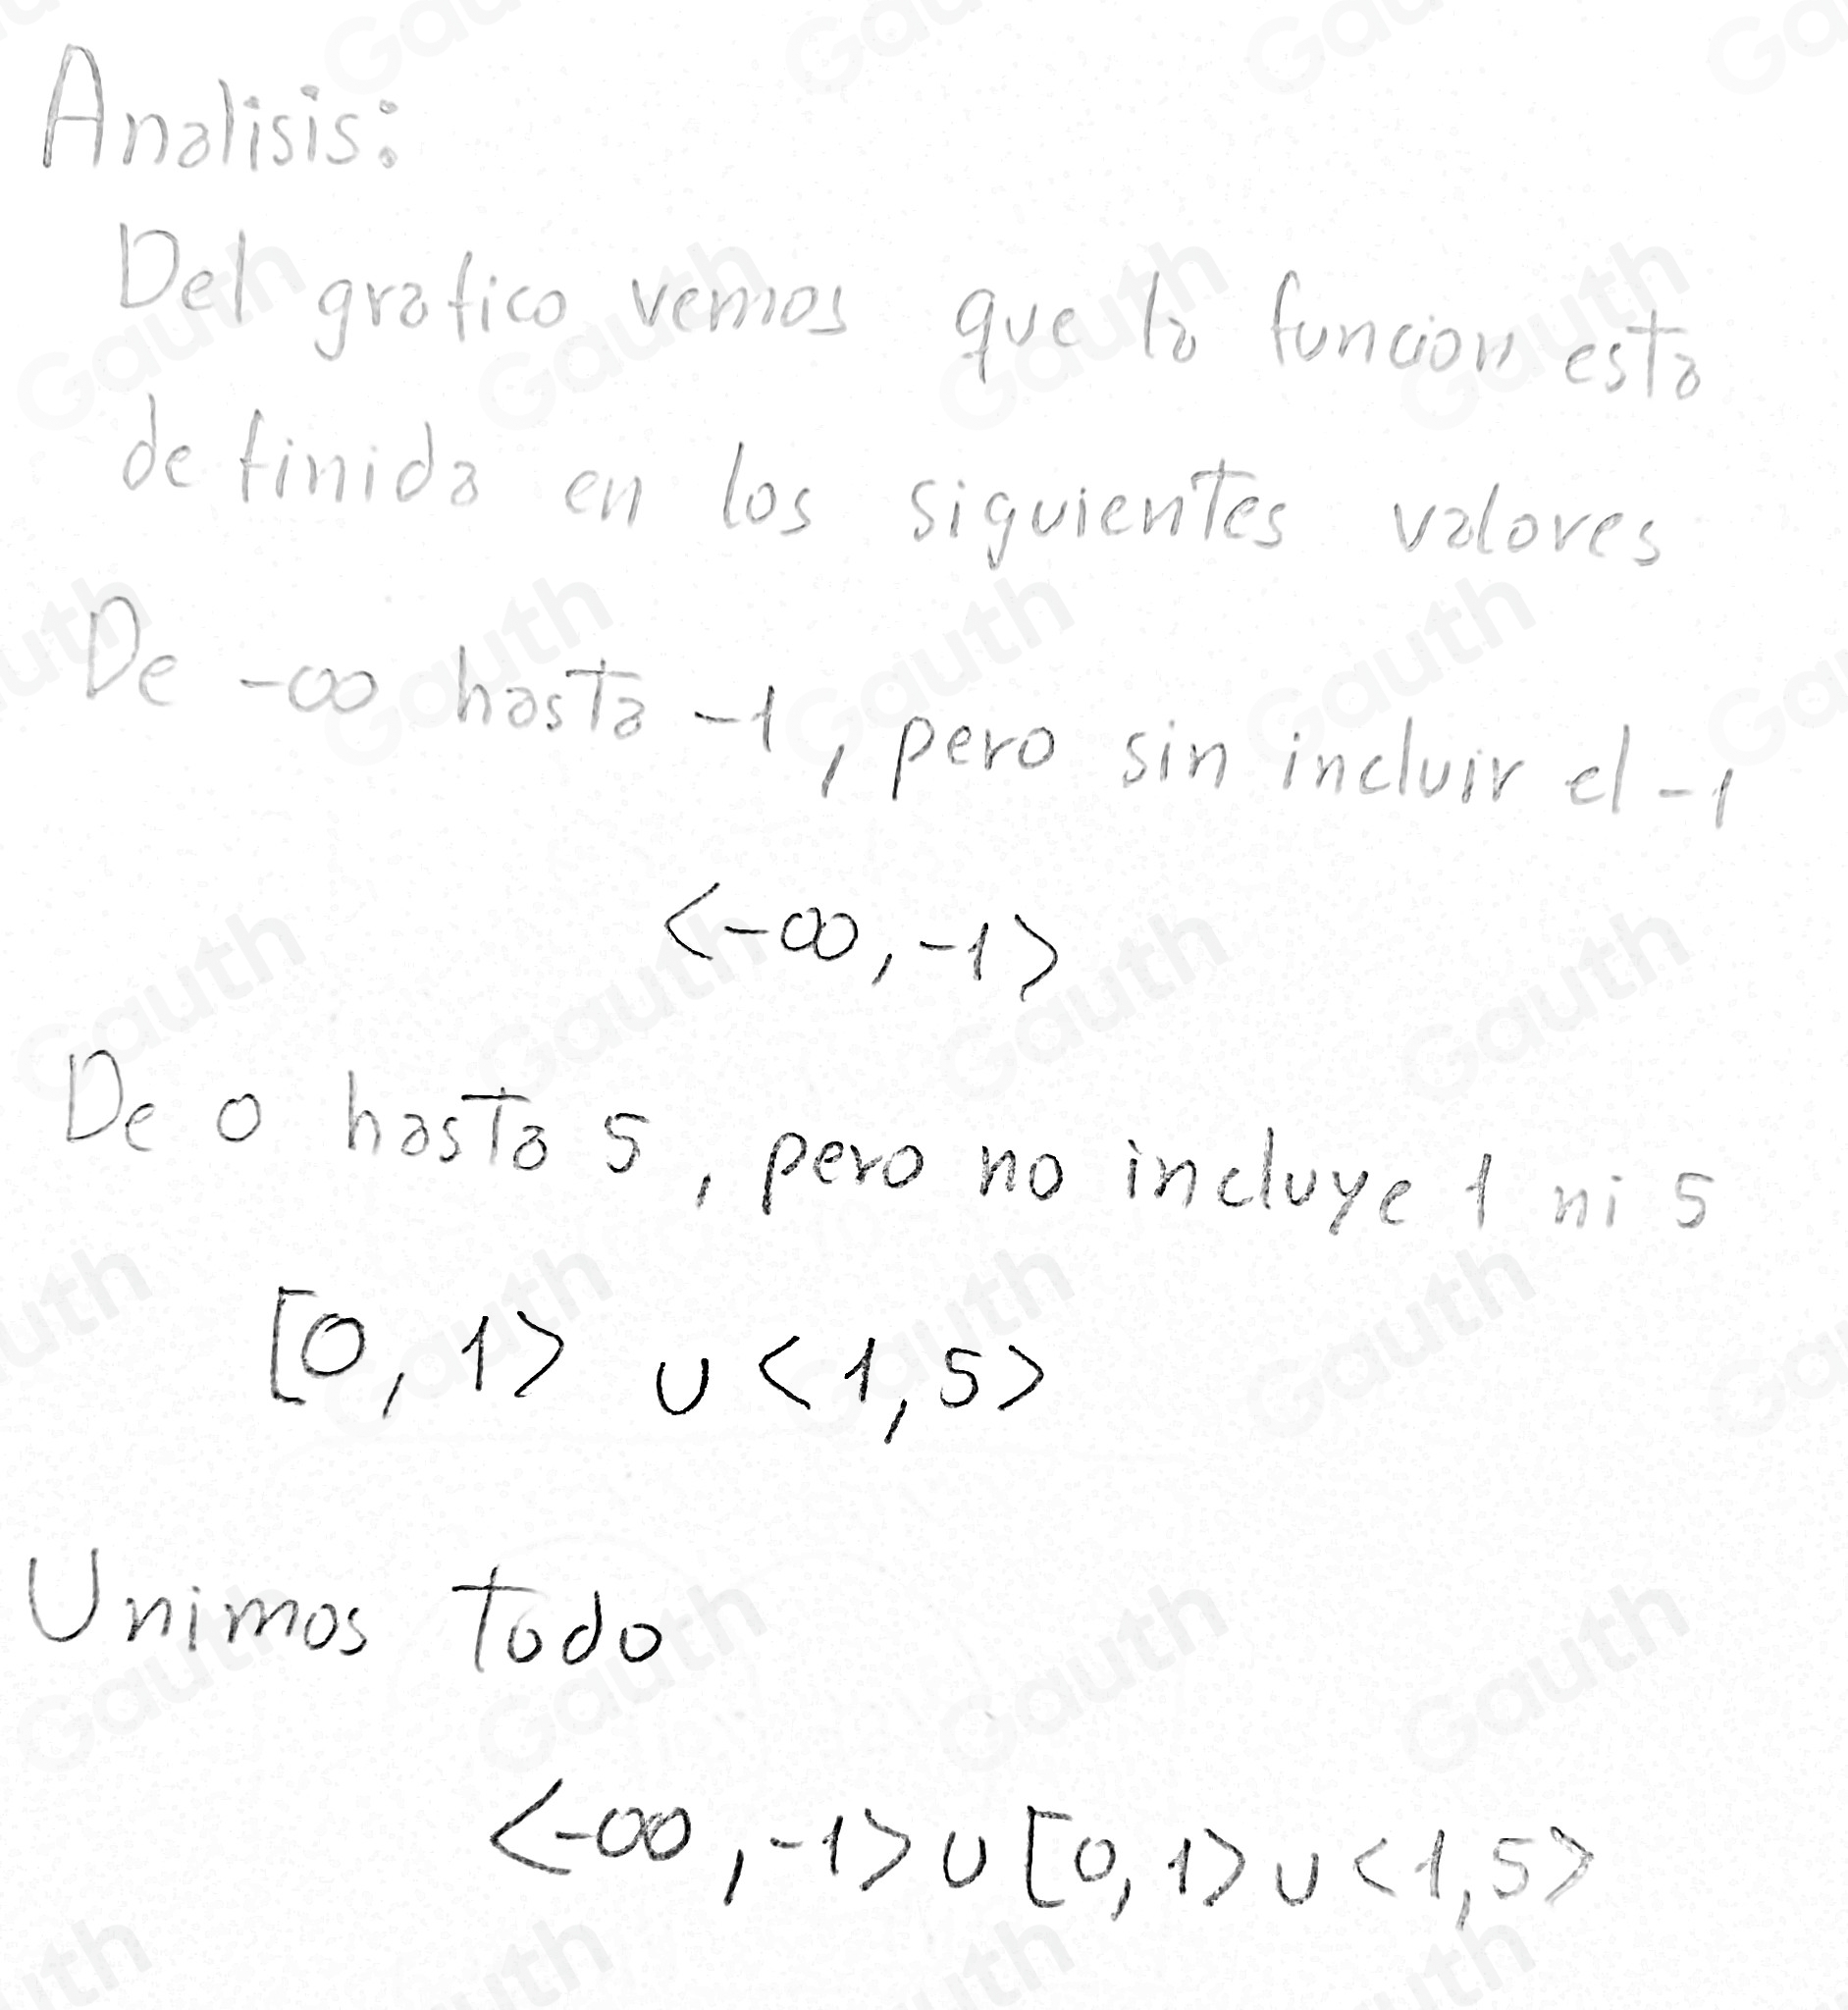 Analisis:
Del grafico vemos que la funcion esta
definida en los siguientes valores
De -∞ hasta -1, pero sin incluir el -1
<-∞, -1>
De 0 hasta 5, pero no incluye 1 ni 5
[0, 1> ∪ <1, 5>
Unimos todo
<-∞, -1> ∪ [0, 1> ∪ <1, 5>